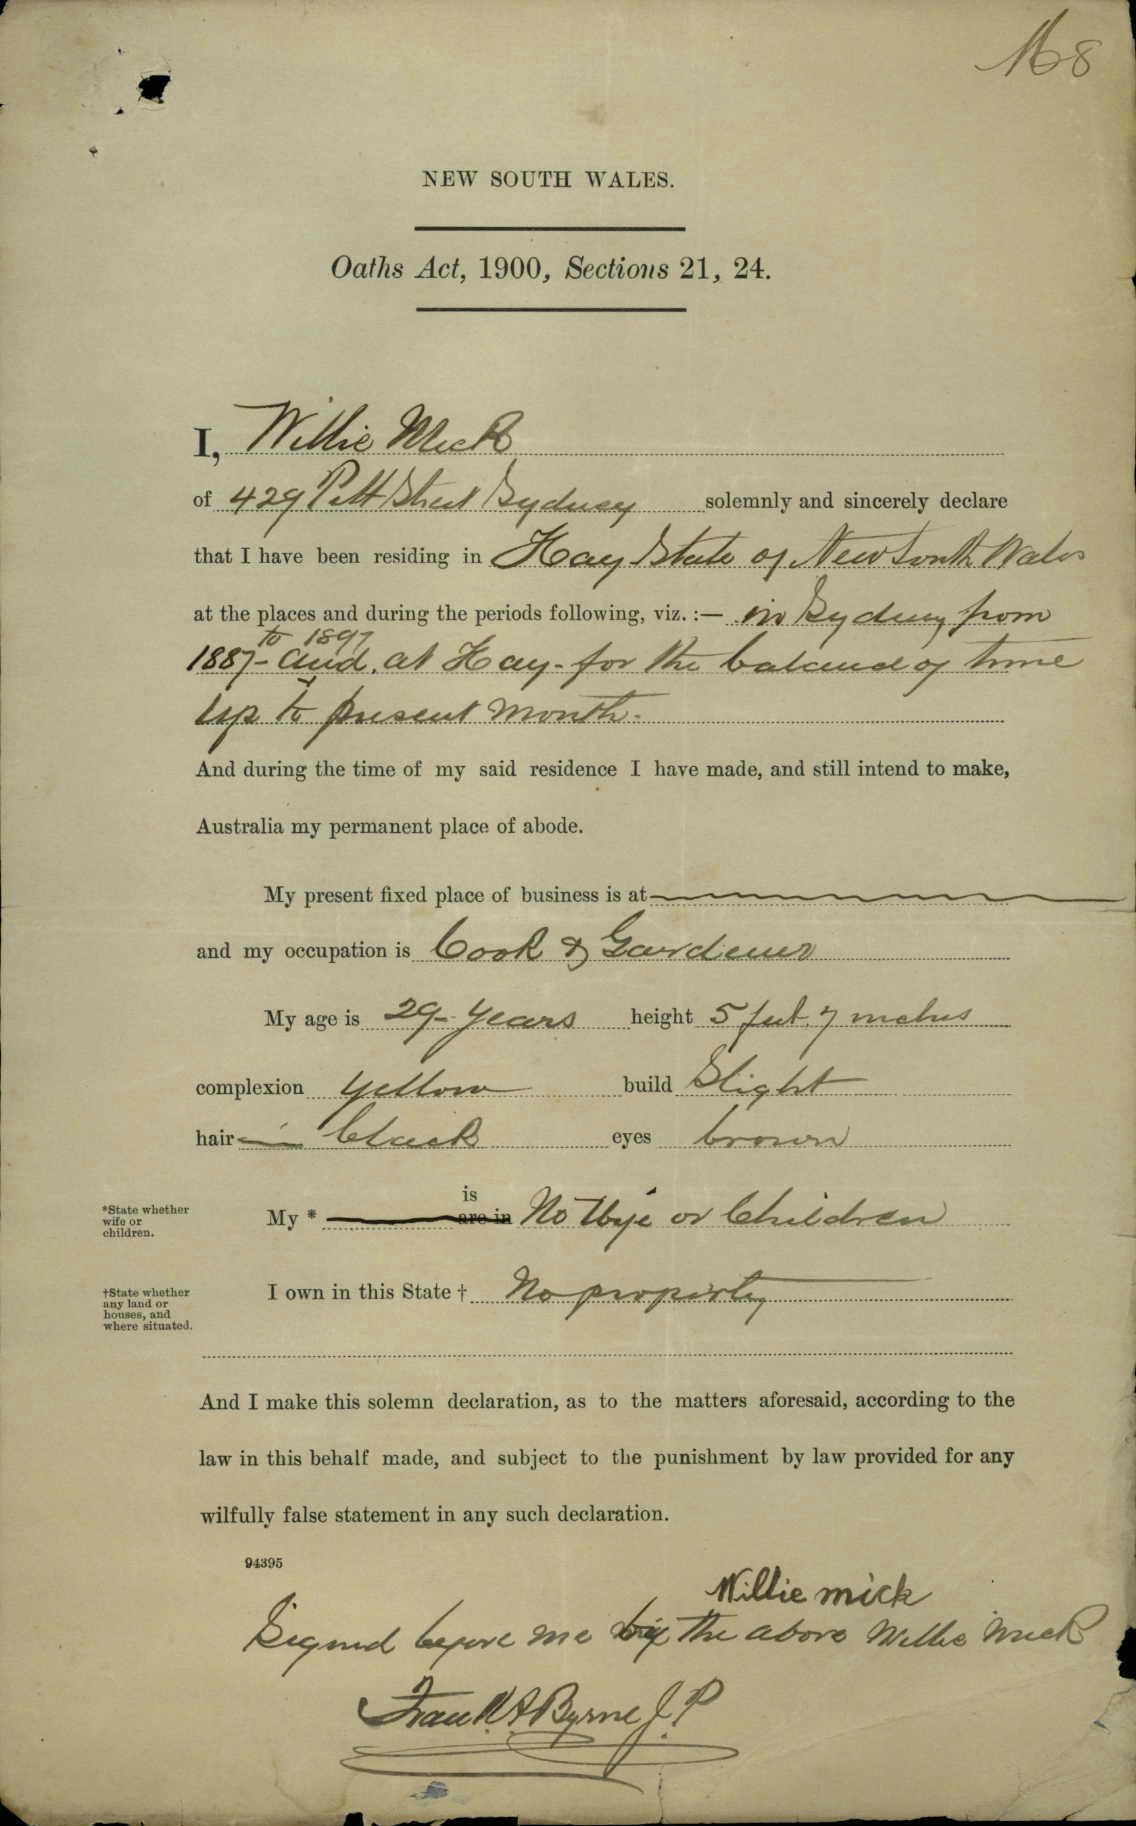 M8
NEW SOUTH WALES.
Oaths Act, 1900, Sections 21, 24.
I, Willie Mick
of 429 Pitt Street Sydney solemnly and sincerely declare
that I have been residing in Hay State of New South Wales
at the places and during the periods following, viz. :— in Sydney from
to 1897
1887 - and at Hay - for the balance of time
up to present month -
And during the time of my said residence I have made, and still intend to make,
Australia my permanent place of abode.
My present fixed place of business is at
and my occupation is Cook & Gardener
My age is 29 - years height 5 feet 7 inches
complexion yellow build Slight
hair black eyes brown
is
*State whether
wife or
children.
My * are in No Wife or Children
†State whether
any land or
houses, and
where situated.
I own in this State † No property
And I make this solemn declaration, as to the matters aforesaid, according to the
law in this behalf made, and subject to the punishment by law provided for any
wilfully false statement in any such declaration.
94395
Willie mick
Signed before me by the above Willie Mick
Frank A Byrne J.P